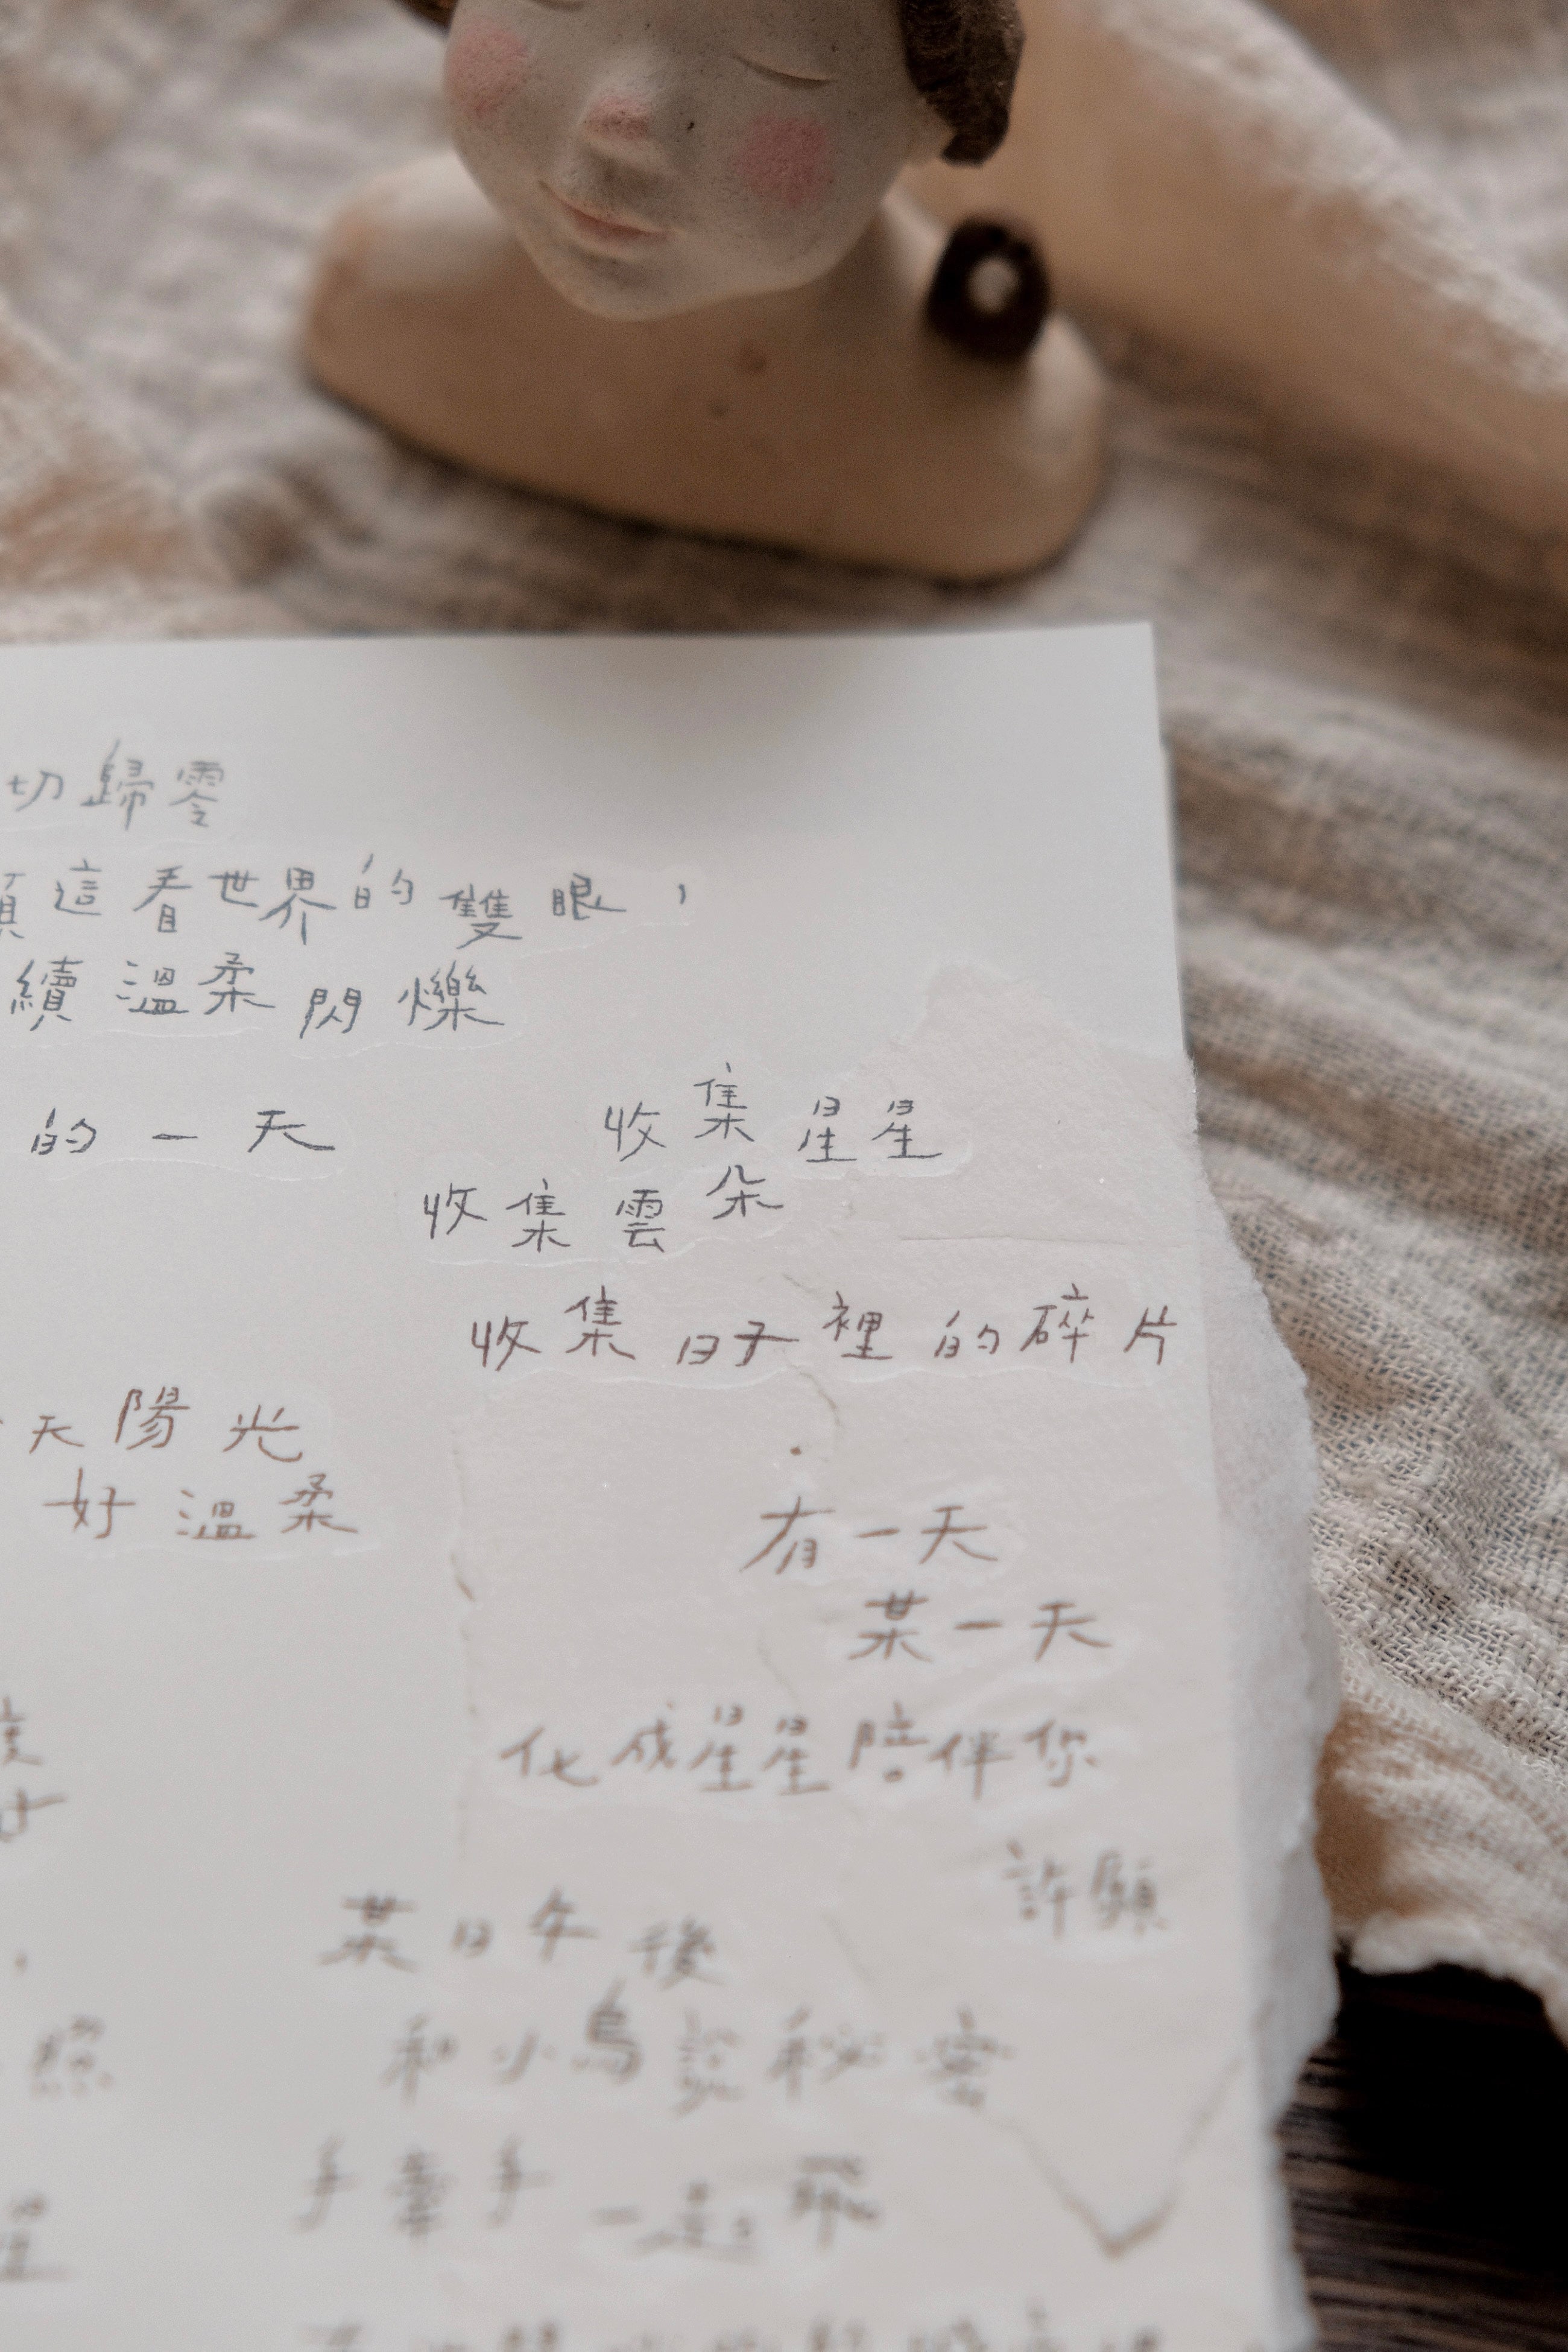 切歸零
這看世界的雙眼，
續溫柔閃爍
的一天 收集星星
收集雲朵
收集日子裡的碎片
天陽光
好溫柔
有一天
某一天
化成星星陪伴你
許願
某日午後
和小鳥說秘密
手牽手一起飛